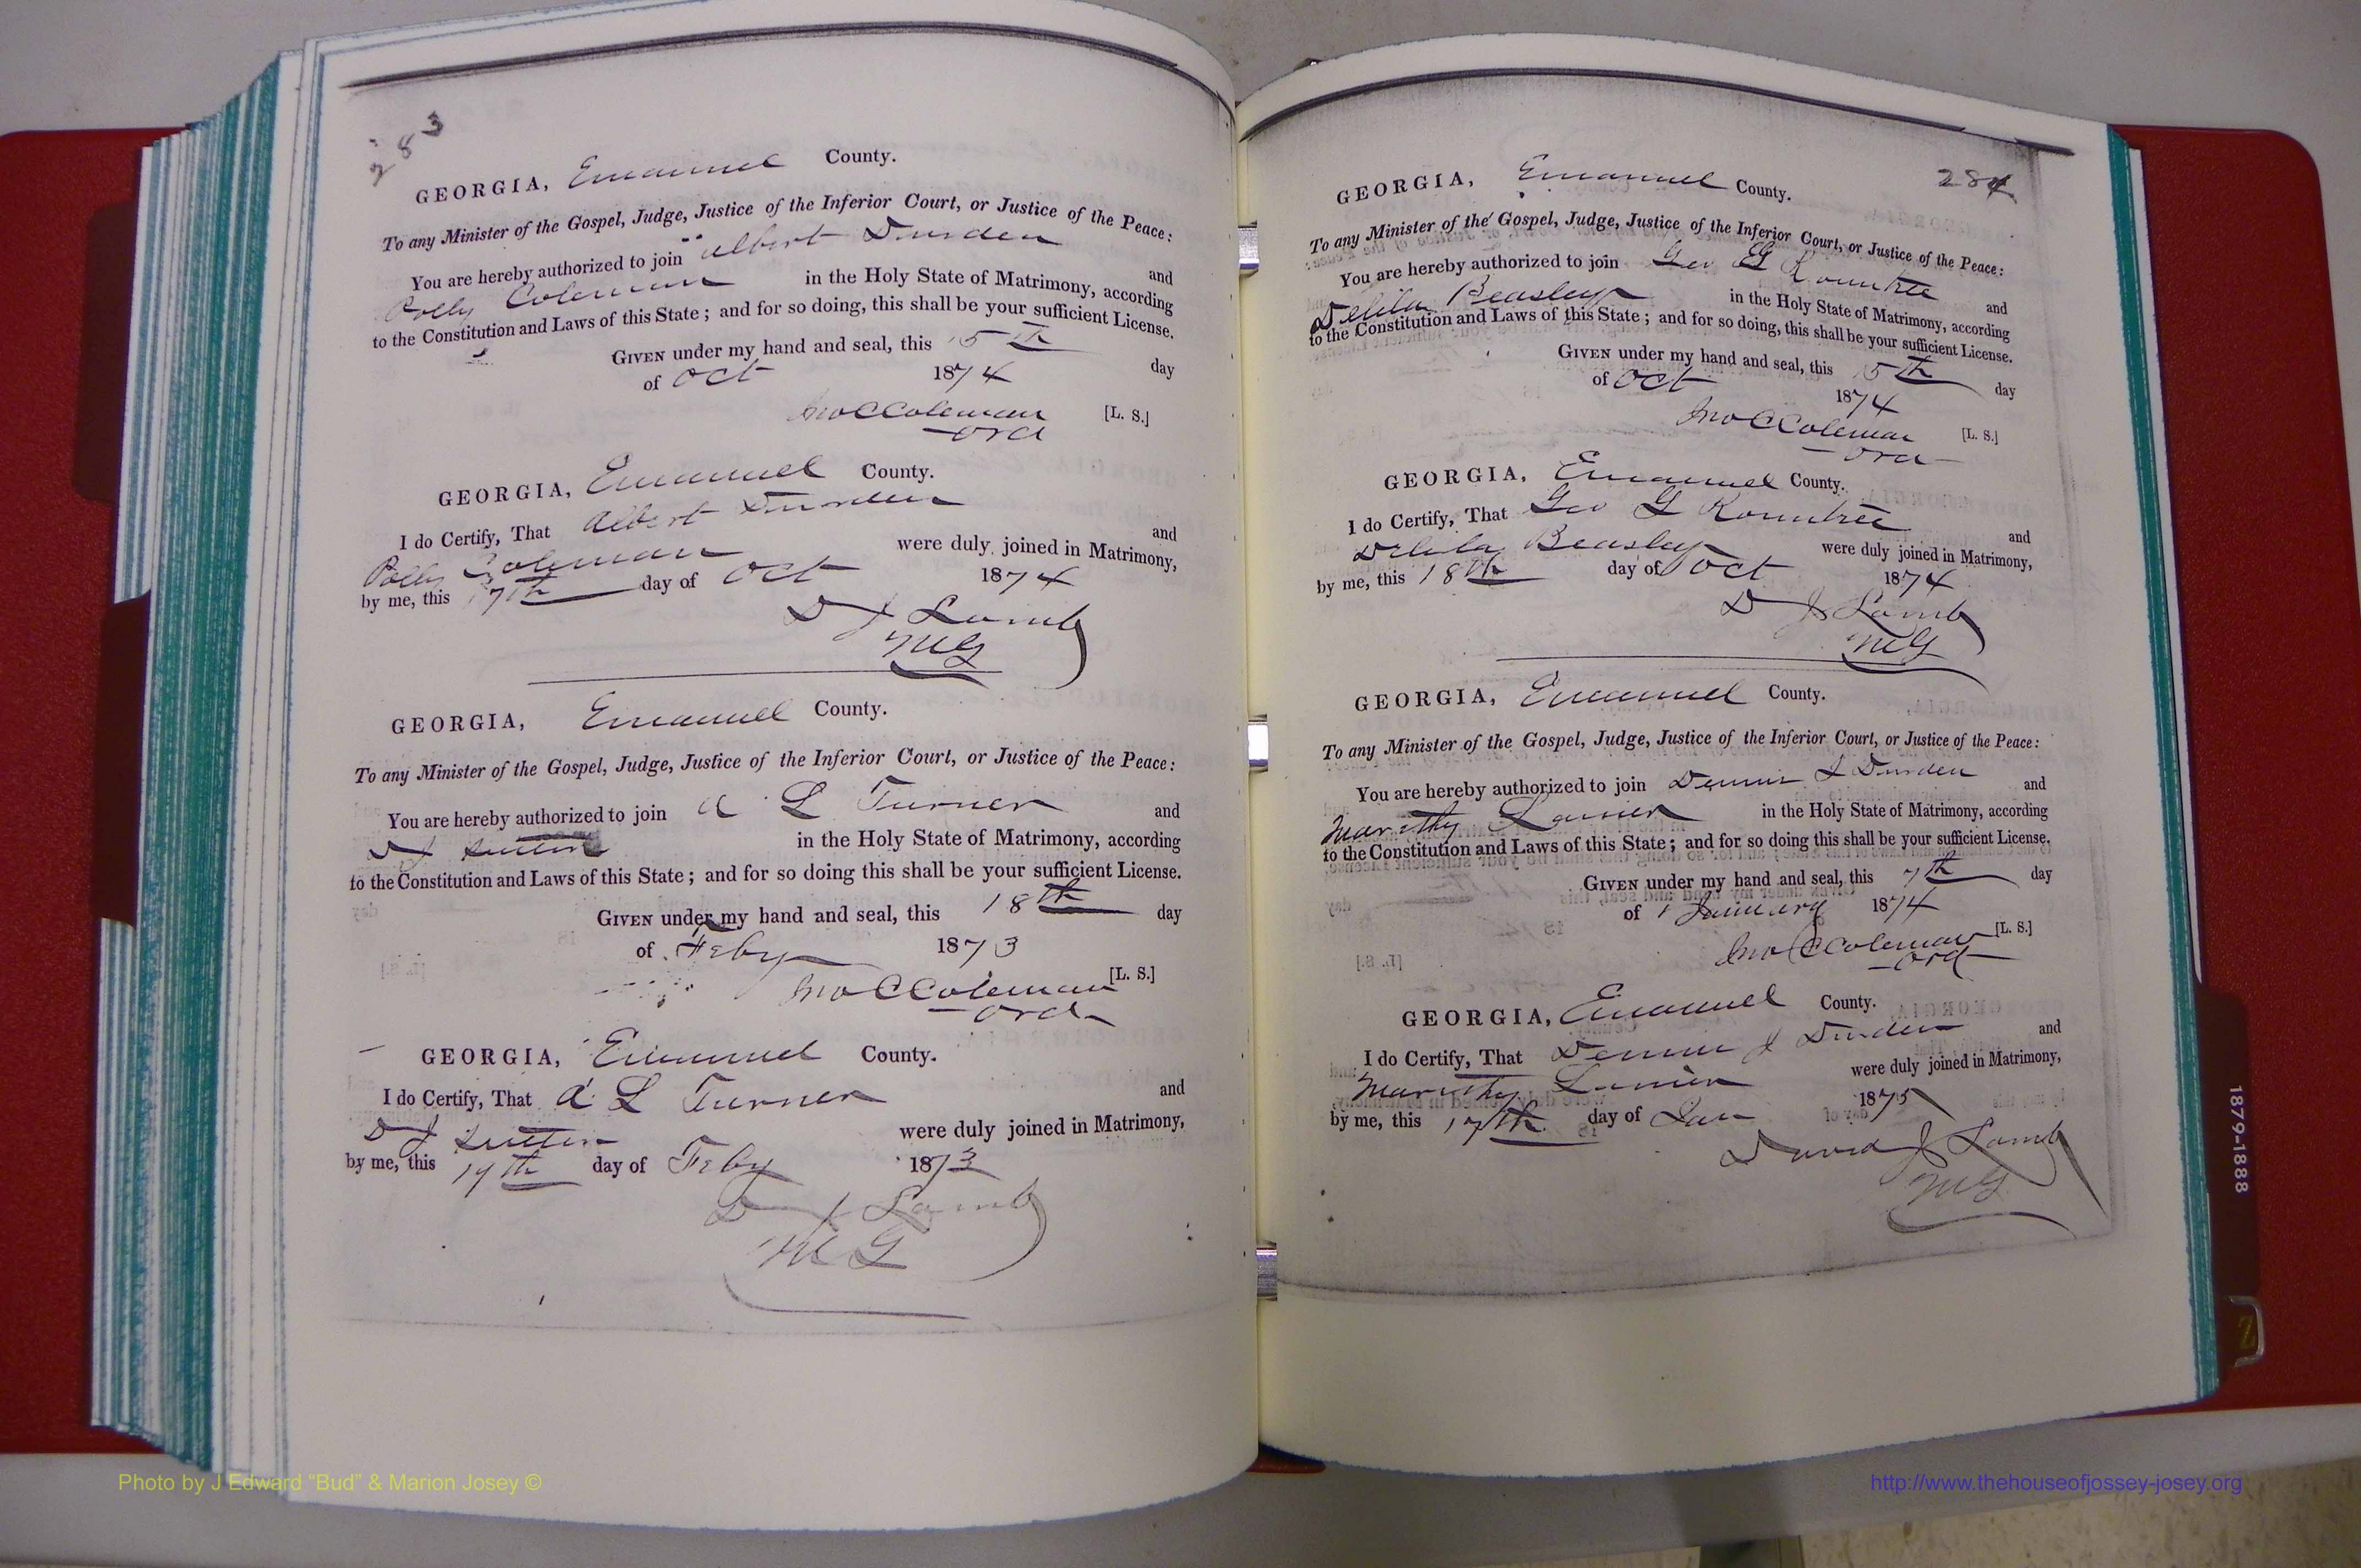 283
GEORGIA, Emanuel County.
To any Minister of the Gospel, Judge, Justice of the Inferior Court, or Justice of the Peace:
You are hereby authorized to join Albert Durden and
Polly Coleman in the Holy State of Matrimony, according
to the Constitution and Laws of this State; and for so doing, this shall be your sufficient License.
GIVEN under my hand and seal, this 15th day
of Oct 1874
Jno C Coleman [L. S.]
ord
GEORGIA, Emanuel County.
I do Certify, That Albert Durden and
Polly Coleman were duly joined in Matrimony,
by me, this 17th day of Oct 1874
D J Lamb
MG
GEORGIA, Emanuel County.
To any Minister of the Gospel, Judge, Justice of the Inferior Court, or Justice of the Peace:
You are hereby authorized to join A L Turner and
D J Sutton in the Holy State of Matrimony, according
to the Constitution and Laws of this State; and for so doing this shall be your sufficient License.
GIVEN under my hand and seal, this 18th day
of Feby 1873
Jno C Coleman [L. S.]
ord
GEORGIA, Emanuel County.
I do Certify, That A L Turner and
D J Sutton were duly joined in Matrimony,
by me, this 19th day of Feby 1873
D J Lamb
MG
284
GEORGIA, Emanuel County.
To any Minister of the Gospel, Judge, Justice of the Inferior Court, or Justice of the Peace:
You are hereby authorized to join Geo G Rountree and
Delila Beasley in the Holy State of Matrimony, according
to the Constitution and Laws of this State; and for so doing, this shall be your sufficient License.
GIVEN under my hand and seal, this 15th day
of Oct 1874
Jno C Coleman [L. S.]
ord
GEORGIA, Emanuel County.
I do Certify, That Geo G Rountree and
Delila Beasley were duly joined in Matrimony,
by me, this 18th day of Oct 1874
D J Lamb
MG
GEORGIA, Emanuel County.
To any Minister of the Gospel, Judge, Justice of the Inferior Court, or Justice of the Peace:
You are hereby authorized to join Dennis J Durden and
Lanier in the Holy State of Matrimony, according
to the Constitution and Laws of this State; and for so doing this shall be your sufficient License.
GIVEN under my hand and seal, this 7th day
of January 1874
Jno C Coleman [L. S.]
ord
GEORGIA, Emanuel County.
I do Certify, That Dennis J Durden and
Lanier were duly joined in Matrimony,
by me, this 17th day of Jan 1875
David J Lamb
MG
1879-1888
Z
Photo by J Edward “Bud” & Marion Josey ©
http://www.thehouseofjossey-josey.org